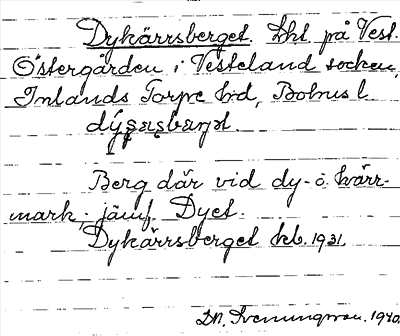 Dykärrsberget. Lht på Vest.
Östergården i Vesteland socken,
Inlands Torpe hd, Bohus l.
Berg där vid dy- o. kärr-
mark; jämf. Dyet.
Dykärrsberget kb. 1931.
1940.